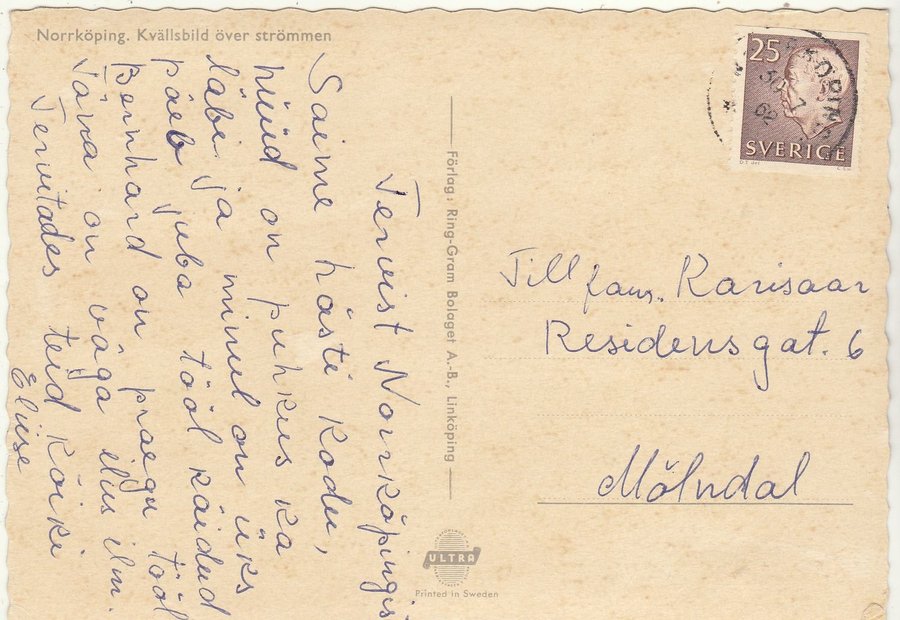 Norrköping. Kvällsbild över strömmen
Tervist Norrköpingis
Saime hästi kodu,
nüüd on puhkus ka
läbi ja minul on üks
päeb juba tööl käidud
Bernhard on praegu tööl
Täna on väga ilus ilm.
Tervitades teid kõiki
Eliise
Förlag: Ring-Gram Bolaget A.-B., Linköping
ULTRA
Printed in Sweden
25
SVERIGE
KÖPIN
30 7
62
Till fam. Karisaar
Residensgat. 6
Mölndal